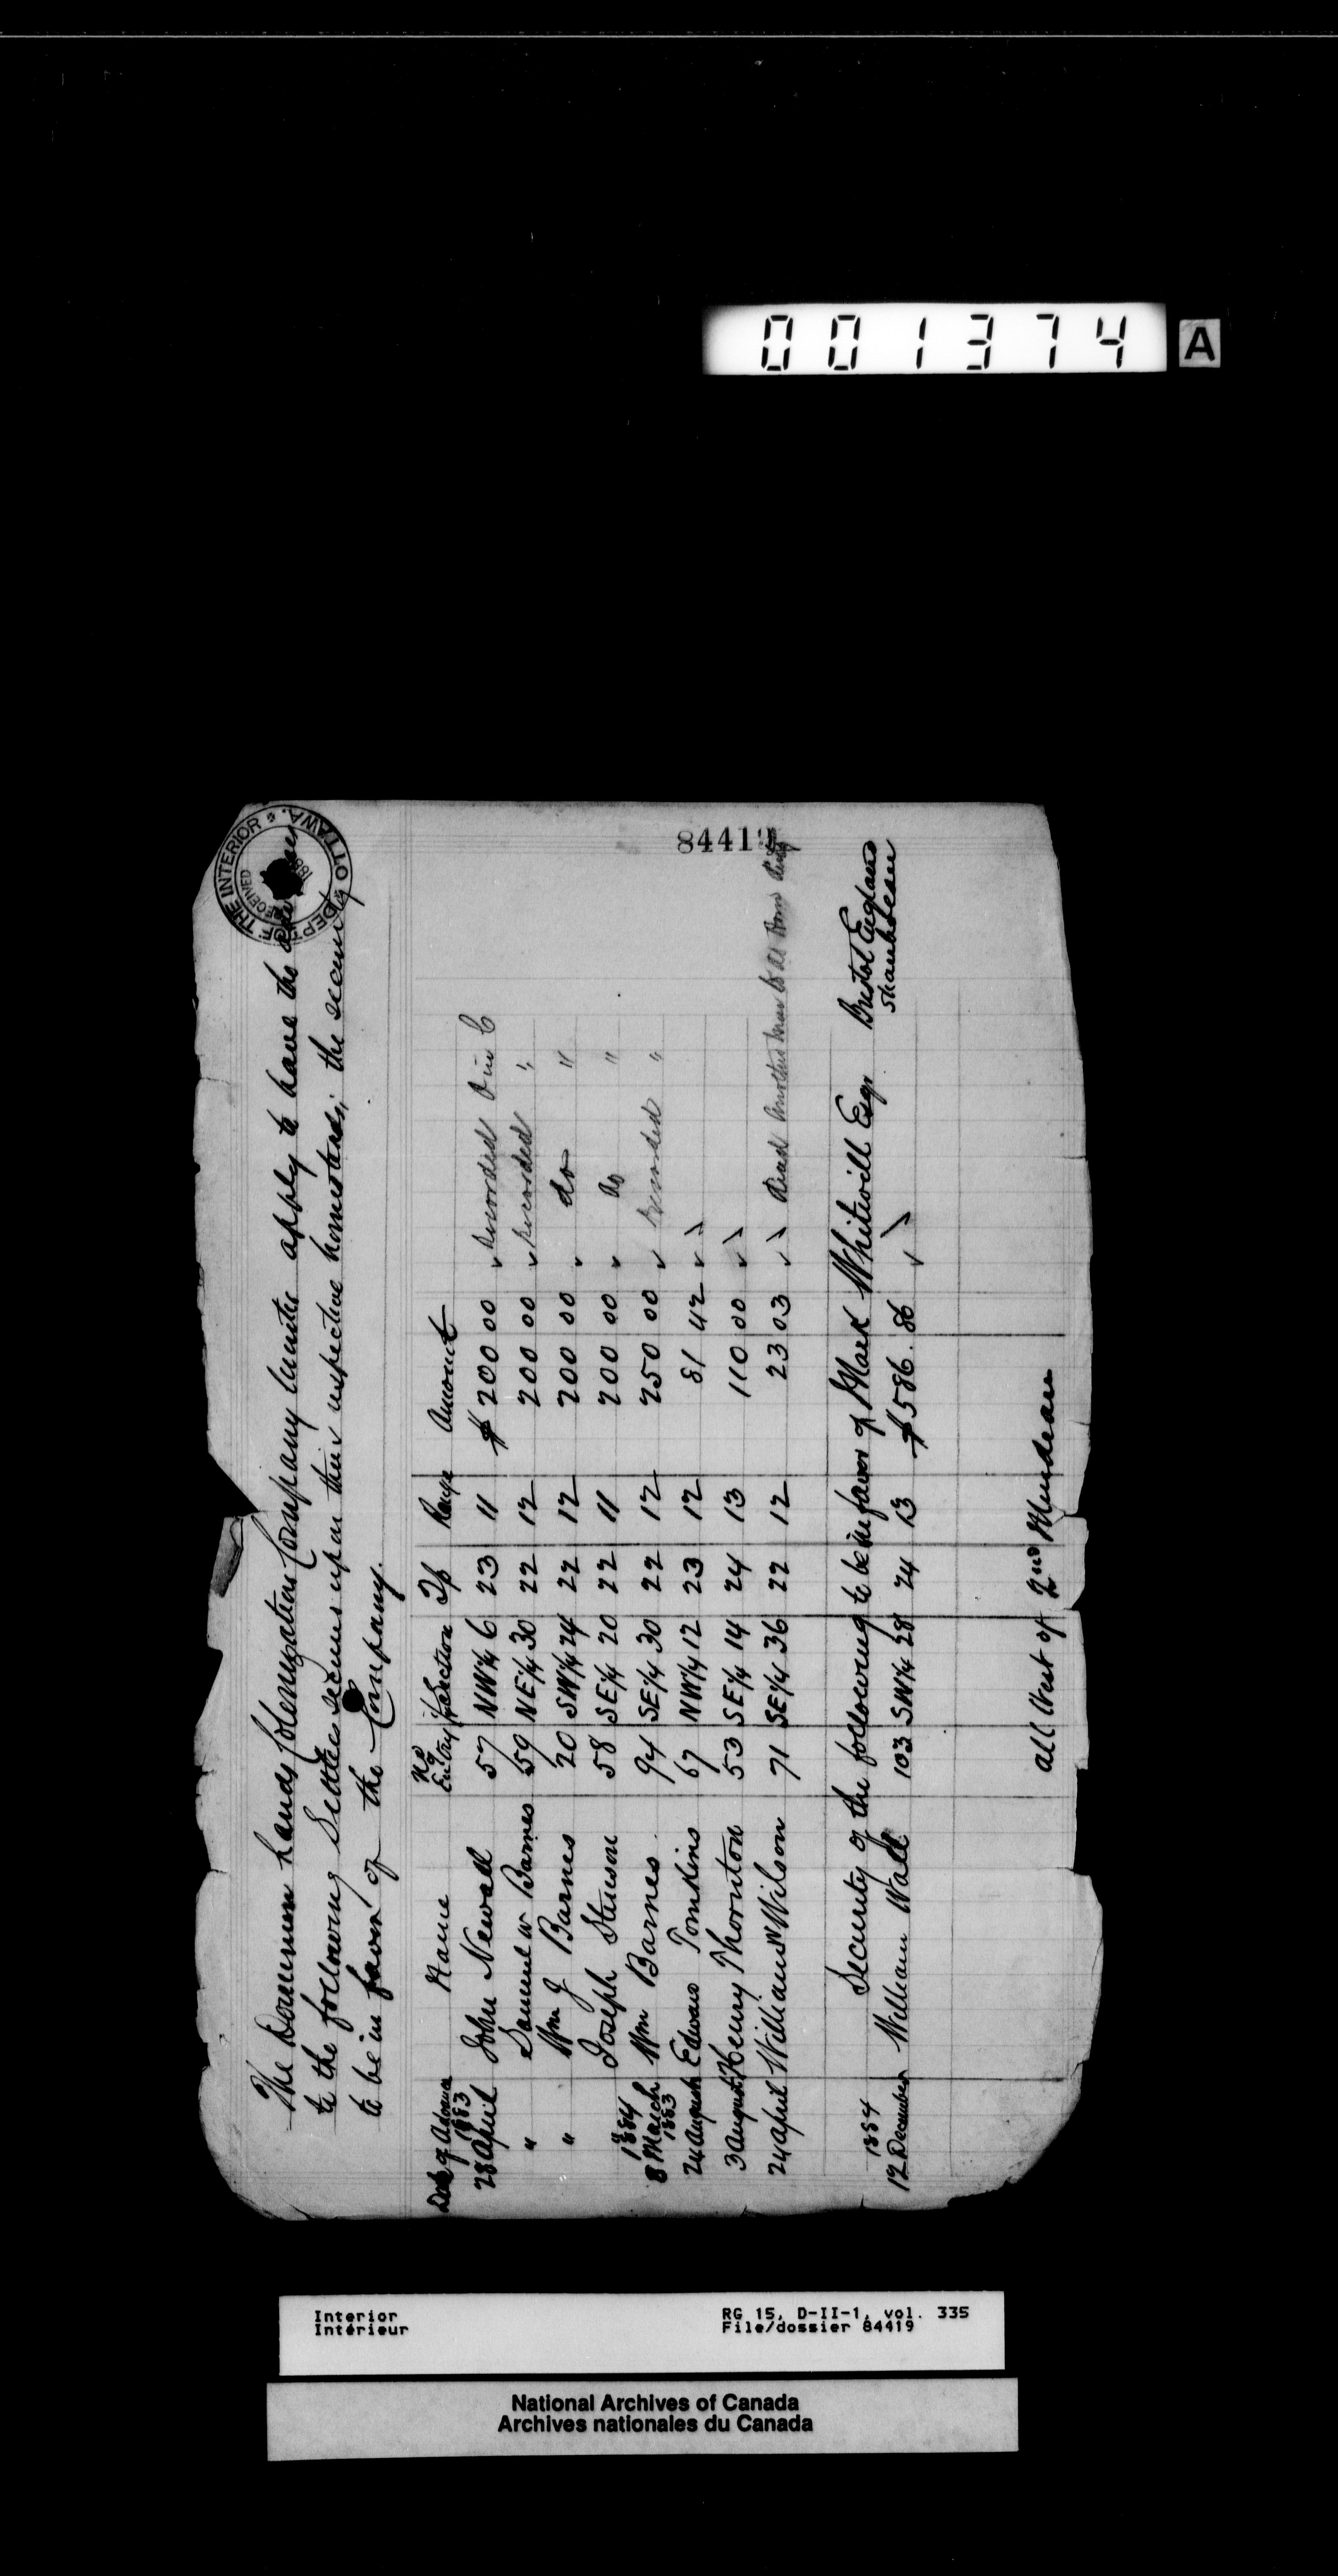 001374 A
84419
DEPT OF THE INTERIOR OTTAWA.
RECEIVED
The Dominion Lands Colonization Company Limited apply to have the
to the following Settlers secured upon their respective homesteads; the security
to be in favor of the Company.
Date of Advance Name No of Entry ¼ Section Tp Range Amount
1883
28 April John Newall 57 NW¼ 6 23 11 $200 00 ✓ Recorded
" Samuel W Barnes 59 NE¼ 30 22 12 200 00 ✓ Recorded "
" Wm J Barnes 20 SW¼ 24 22 12 200 00 ✓ do "
" Joseph Stinson 58 SE¼ 20 22 11 200 00 ✓ do "
1884
8 March Wm Barnes 94 SE¼ 30 22 12 250 00 ✓ Recorded "
1883
24 August Edward Tomkins 67 NW¼ 12 23 12 81 42 ✓
3 August Henry Thornton 53 SE¼ 14 24 13 110 00 ✓
24 April William W Wilson 71 SE¼ 36 22 12 23 03 ✓ Read Another
Security of the following to be in favor of Mark Whitwill Esqr Bristol England
1884
12 December William Wall 103 SW¼ 28 24 13 $586.86 ✓
all West of 2nd Meridian
Interior
Intérieur
RG 15, D-II-1, vol. 335
File/dossier 84419
National Archives of Canada
Archives nationales du Canada